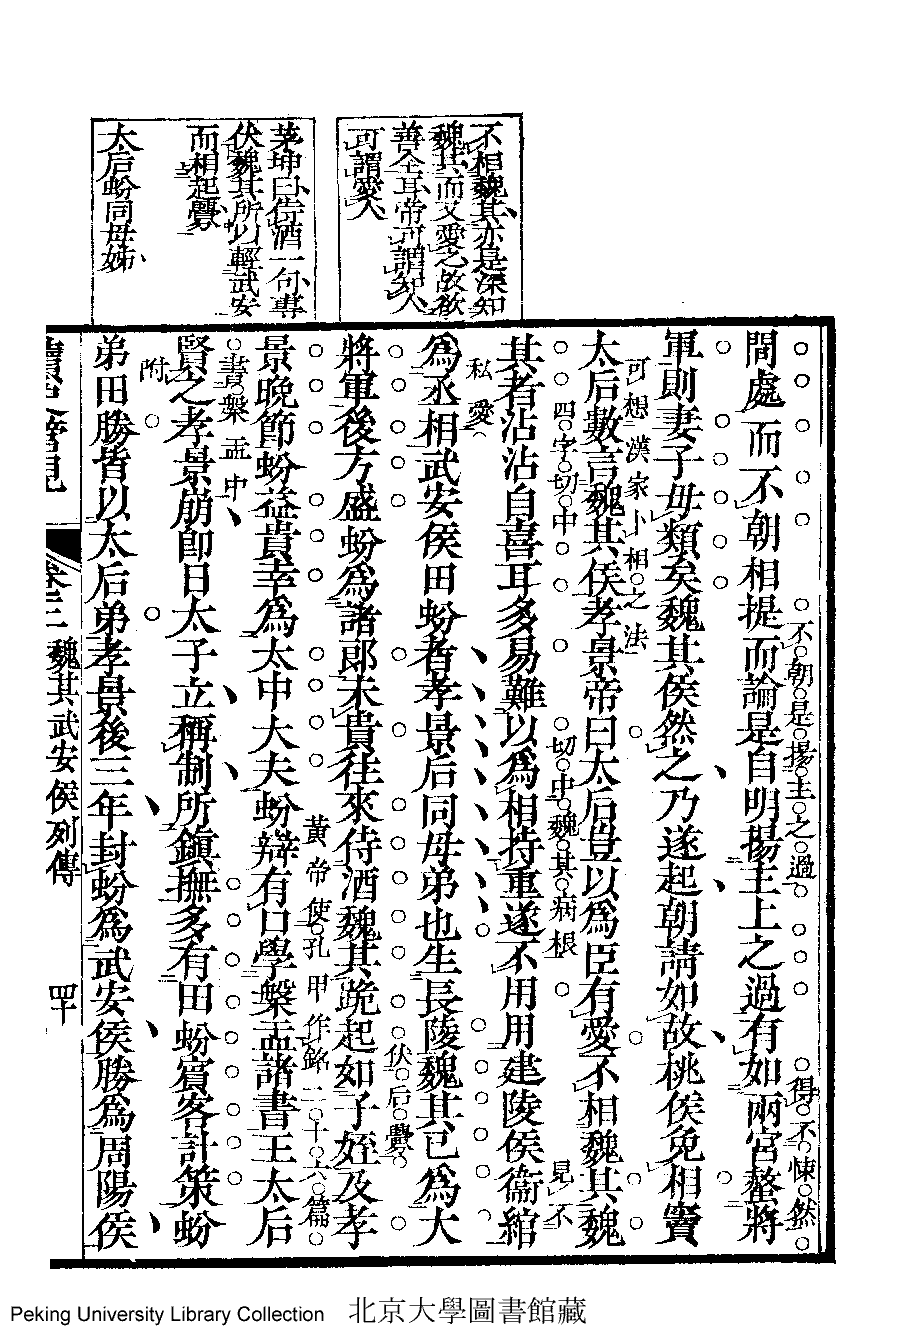 不相魏其亦是深知
魏其而又愛之故欲
善全耳帝可謂知人
可謂愛人
茅坤曰侍酒一句專
伏魏其所以輕武安
而相起釁
太后蚡同母姊
間處而不朝相提而論是自明揚主上之過有如兩宮螫將
不朝是揚主之過
得不悚然
軍則妻子毋類矣魏其侯然之乃遂起朝請如故桃侯免相竇
太后數言魏其侯孝景帝曰太后豈以為臣有愛不相魏其魏
可想漢家卜相之法
見不
其者沾沾自喜耳多易難以為相持重遂不用用建陵侯衞綰
四字切中
切中魏其病根
為丞相武安侯田蚡者孝景后同母弟也生長陵魏其已為大
私愛
將軍後方盛蚡為諸郎未貴往來侍酒魏其跪起如子姪及孝
伏后釁
景晚節蚡益貴幸為太中大夫蚡辯有口學槃盂諸書王太后
黃帝使孔甲作銘二十六篇
賢之孝景崩即日太子立稱制所鎮撫多有田蚡賓客計策蚡
書槃盂中
弟田勝皆以太后弟孝景後三年封蚡為武安侯勝為周陽侯
附
讀史管見
卷三
魏其武安侯列傳
四十
Peking University Library Collection 北京大學圖書館藏